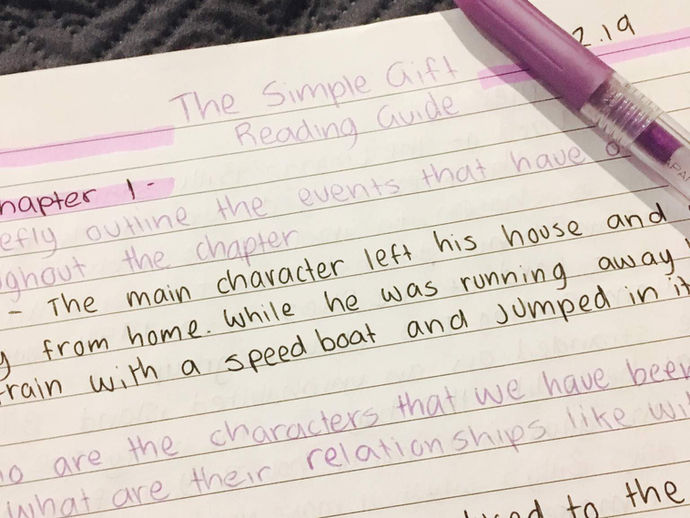 2.19
The Simple Gift
Reading Guide
hapter 1-
efly outline the events that have o
ghout the chapter
- The main character left his house and
y from home. While he was running away
train with a speed boat and jumped in it
o are the characters that we have been
what are their relationships like wil
to the